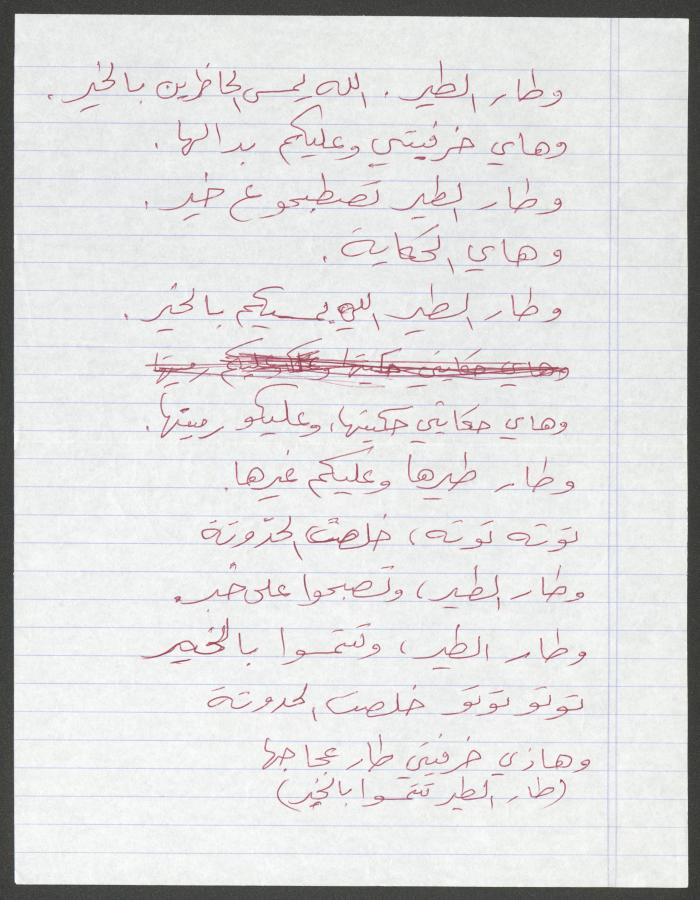 وطار الطير. الله يمسي الحاظرين بالخير.
وهاي خرفيتي وعليكم بدالها.
وطار الطير تصطبحو ع خير.
وهاي الحكاية.
وطار الطير الله يمسيكم بالخير.
وهاي حكايتي حكيتها وعليكم رميتها
وهاي حكايتي حكيتها، وعليكو رميتها.
وطار طيرها وعليكم غيرها.
توته توته، خلصت الحدّوتة
وطار الطير، وتصبحوا على خير.
وطار الطير، وتتمسوا بالخير
توتو توتو خلصت الحدوتة
وهاذي خرفيتي طار عجاجها
(طار الطير تتمسوا بالخير)